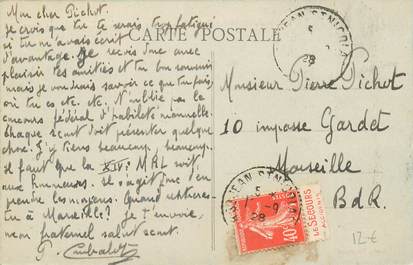 Mon cher Pichot.
Je crois que tu te serais trop fatigué
si tu m'avais écrit
d'avantage. Je reçois donc avec
plaisir tes amitiés et ton bon souvenir
mais je voudrais savoir ce que tu fais,
où tu es etc. etc. N'oublie pas le
concours fédéral d'habileté manuelle.
Chaque scout doit présenter quelque
chose. J'y tiens beaucoup, beaucoup.
Il faut que la XIVe MRL soit
aux honneurs. Il s'agit d'en
prendre les moyens. Quand
tu à Marseille? Je t'envoie,
mon fraternel salut scout.
CARTE POSTALE
ST NICOLAS
5
28
Monsieur Pierre Pichot
10 impasse Gardet
Marseille
BdR.
JEAN ST NICOLAS
5 -9
28
LE SECOURS
12 €